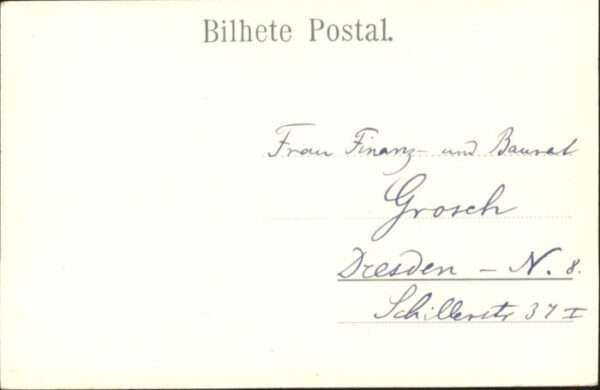 Bilhete Postal.
Frau Finanz- und Baurat
Grosch
Dresden – N. 8.
Schillerstr 37 I